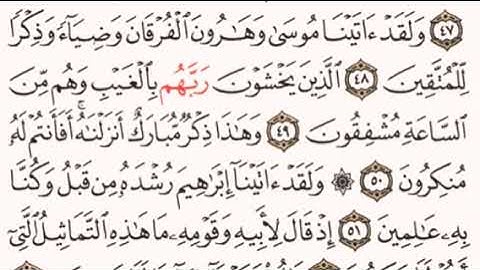 ٤٧ وَلَقَدْ ءَاتَيْنَا مُوسَىٰ وَهَٰرُونَ ٱلْفُرْقَانَ وَضِيَآءً وَذِكْرًا
لِّلْمُتَّقِينَ ٤٨ ٱلَّذِينَ يَخْشَوْنَ رَبَّهُم بِٱلْغَيْبِ وَهُم مِّنَ
ٱلسَّاعَةِ مُشْفِقُونَ ٤٩ وَهَٰذَا ذِكْرٌ مُّبَارَكٌ أَنزَلْنَٰهُ ۚ أَفَأَنتُمْ لَهُۥ
مُنكِرُونَ ٥٠ ۞ وَلَقَدْ ءَاتَيْنَآ إِبْرَٰهِيمَ رُشْدَهُۥ مِن قَبْلُ وَكُنَّا
بِهِۦ عَٰلِمِينَ ٥١ إِذْ قَالَ لِأَبِيهِ وَقَوْمِهِۦ مَا هَٰذِهِ ٱلتَّمَاثِيلُ ٱلَّتِىٓ